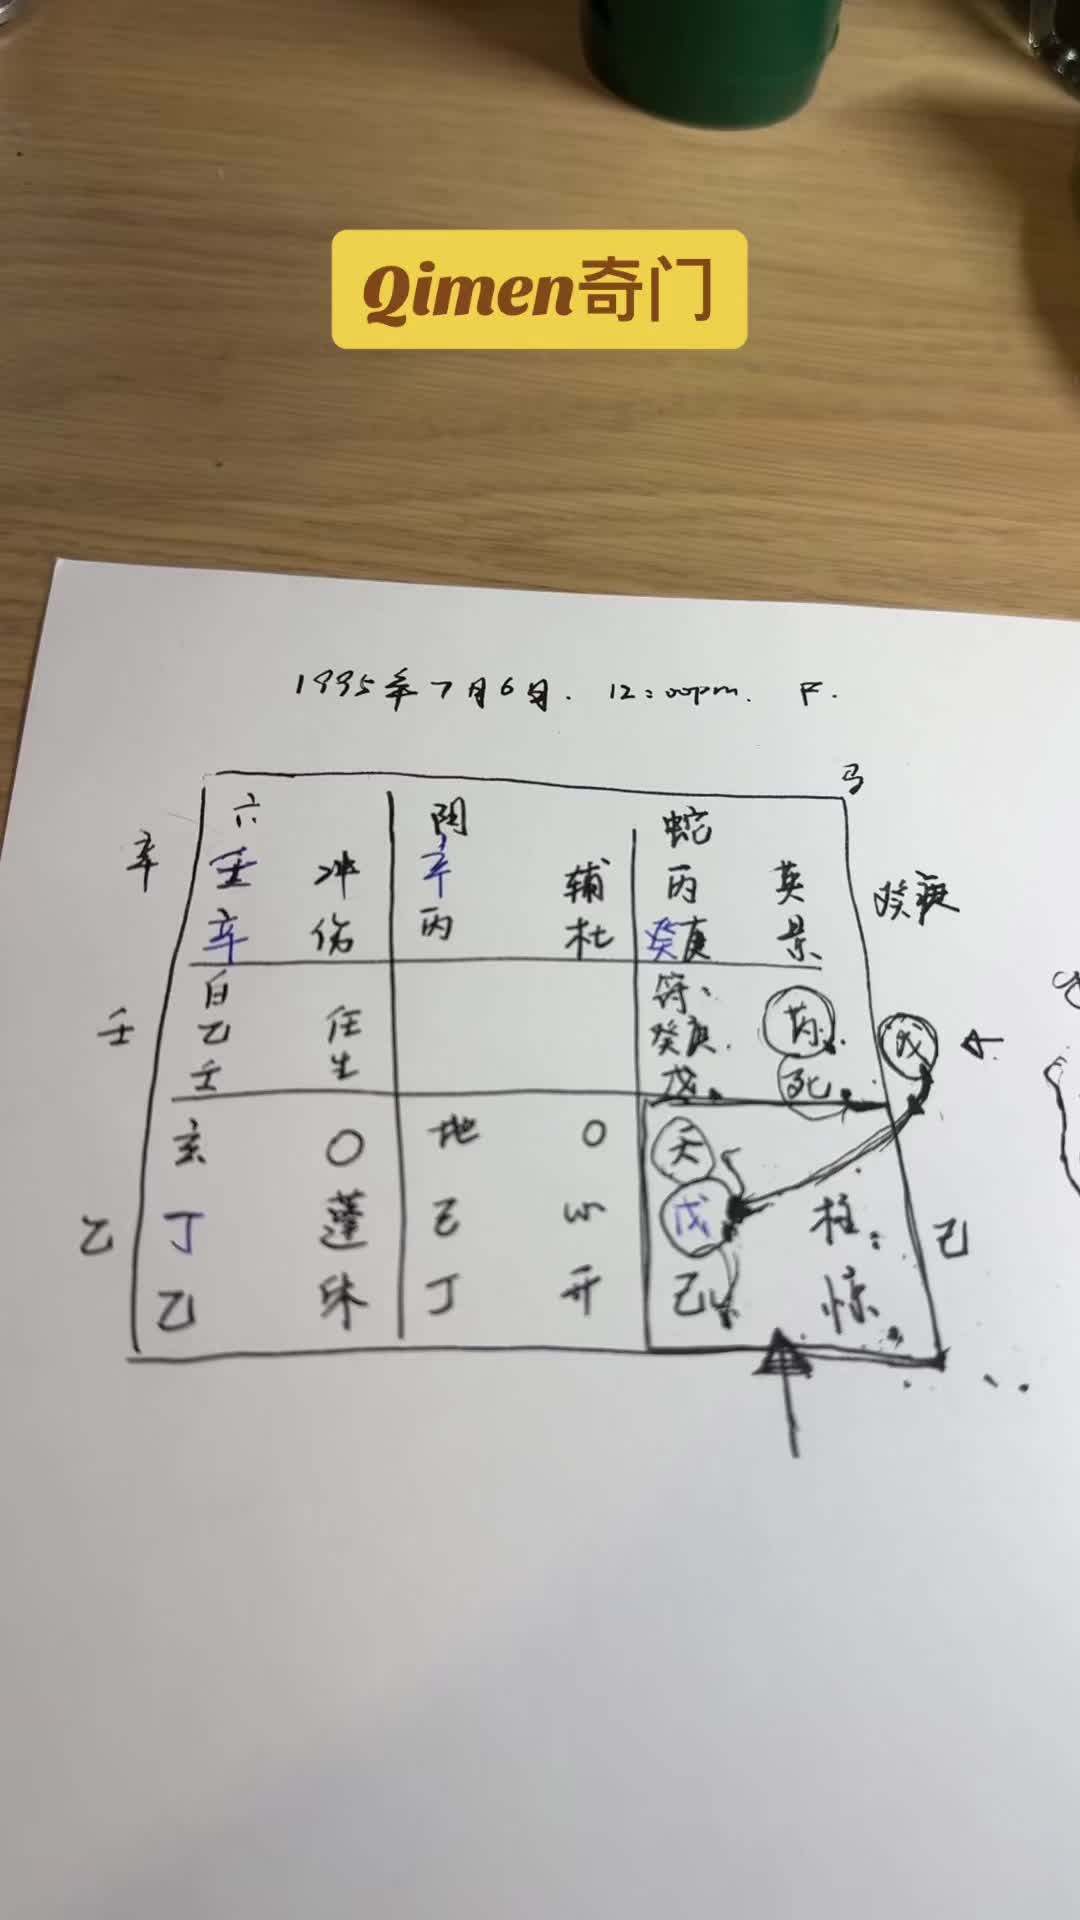 Qimen奇门
1995年7月6日. 12:00pm. F.
马
六 阴 蛇
辛 壬 冲 辛 辅 丙 英 癸庚
辛 伤 丙 杜 癸庚 景
白 符
壬 乙 任 癸庚 芮 戊
壬 生 戊 死
玄 〇 地 〇 天
乙 丁 蓬 己 心 戊 柱 己
乙 休 丁 开 己 惊